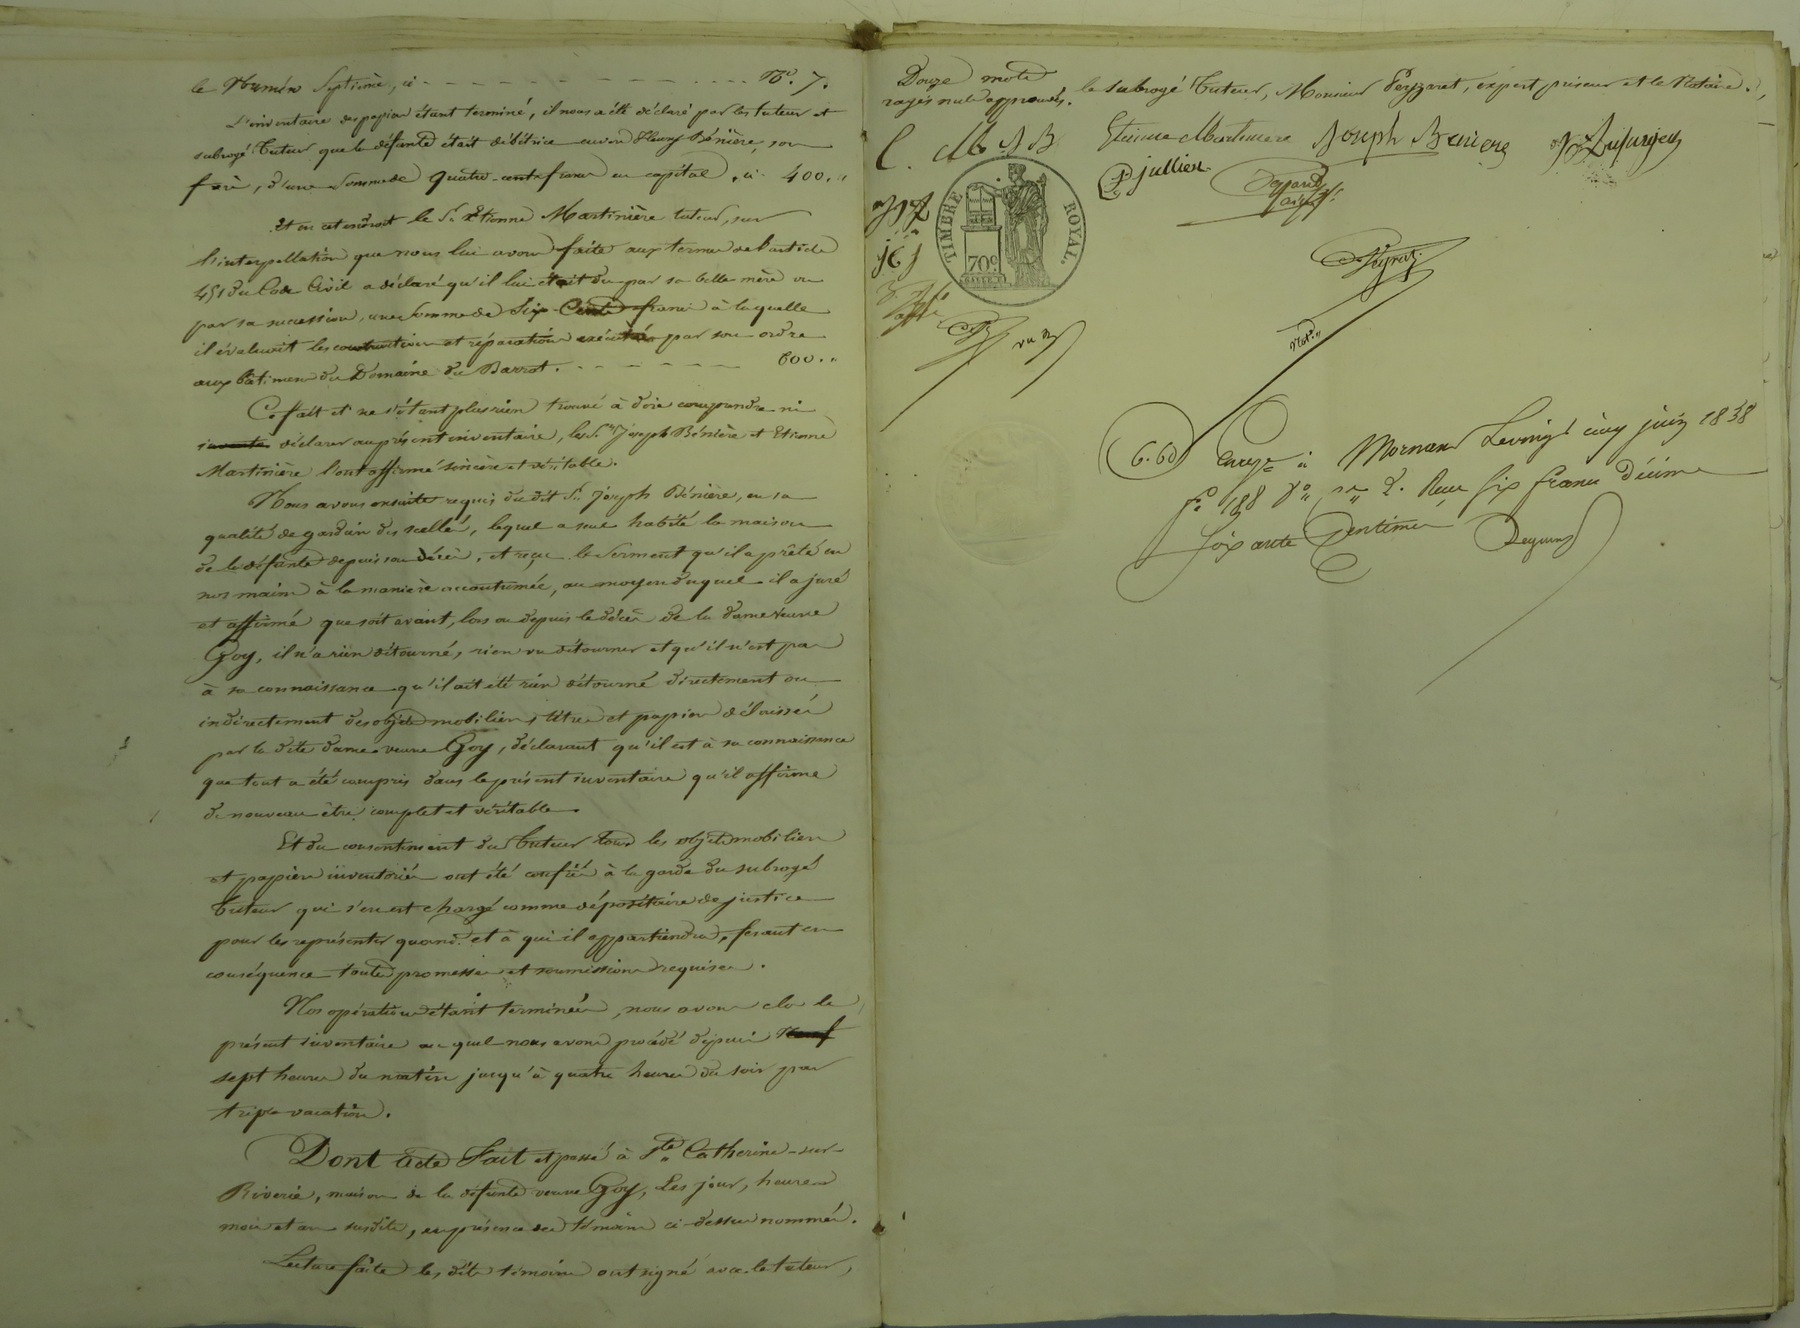 le Numéro Septième, ci - - - - - - - - - - N°. 7.
L'inventaire des papiers étant terminé, il nous a été déclaré par les tuteur et
subrogé Tuteur que la défunte était débitrice envers Fleury Bénière, son
frère, d'une somme de quatre-cents francs en capital, ci 400. "
Et en cet endroit le Sr. Etienne Martinière tuteur, sur
l'interpellation que nous lui avons faite aux termes de l'article
451 du Code Civil a déclaré qu'il lui était dû par sa belle-mère ou
par sa succession, une somme de Six-Cents francs à laquelle
il évaluait les constructions et réparations exécutées par son ordre
aux bâtimens du Domaine du Barrot. - - - - - - 600. "
Ce fait et ne s'étant plus rien trouvé à dire comprendre ni
déclarer au présent inventaire, les Srs. Joseph Bénière et Etienne
Martinière l'ont affirmé sincère et véritable.
Nous avons ensuite requis du dit Sr. Joseph Bénière, en sa
qualité de gardien des scellés, lequel a seul habité la maison
de la défunte depuis son décès, et reçu le Serment qu'il a prêté en
nos mains à la manière accoutumée, au moyen duquel il a juré
et affirmé que soit avant, lors ou depuis le décès de la dame veuve
Goy, il n'a rien détourné, rien vu détourner et qu'il n'est pas
à sa connaissance qu'il ait été rien détourné directement ou
indirectement des objets mobiliers, titres et papiers délaissés
par la dite dame veuve Goy, déclarant qu'il est à sa connaissance
que tout a été compris dans le présent inventaire qu'il affirme
de nouveau être complet et véritable.
Et du consentement du Tuteur tous les objets mobiliers
et papiers inventoriés ont été confiés à la garde du subrogé
Tuteur qui s'en est chargé comme dépositaire de justice
pour les représenter quand et à qui il appartiendra, fesant en
conséquence toutes promesses et soumissions requises.
Nos opérations étant terminées, nous avons clos le
présent inventaire auquel nous avons procédé depuis Neuf
sept heures du matin jusqu'à quatre heures du soir par
triple vacation.
Dont Acte Fait et passé à Ste. Catherine-sur-
Riverie, maison de la défunte veuve Goy, Les jour, heures
mois et an susdits, en présence des témoins ci-dessus nommés.
Lecture faite les dits témoins ont signé avec le tuteur,
Douze mots
rayés nuls approuvés.
le subrogé Tuteur, Monsieur Peyzaret, expert priseur et le Notaire.
Etienne Martiniere Joseph Beniere
jullien
TIMBRE ROYAL.
70c
Not.re
6.60 Enreg.é à Mornant Le vingt cinq juin 1838
f.o 188 V.o c. 2. Reçu Six francs Décime
Soixante Centimes